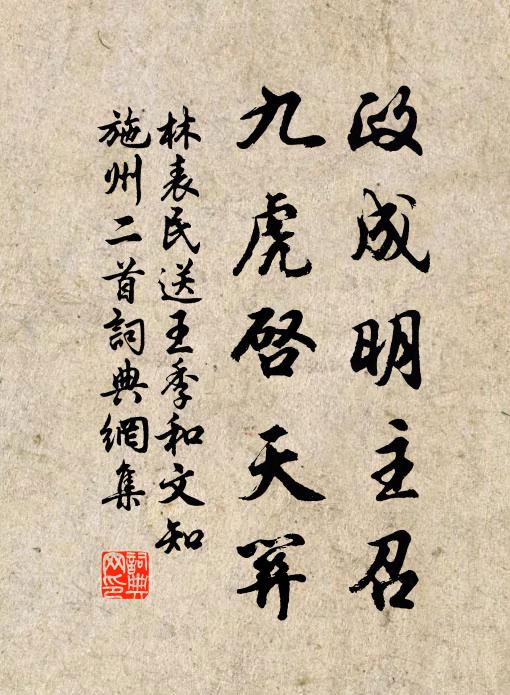 政成明主召
九虎啓天關
林表民送王季和文知
施州二首詞典網集
詞典网印